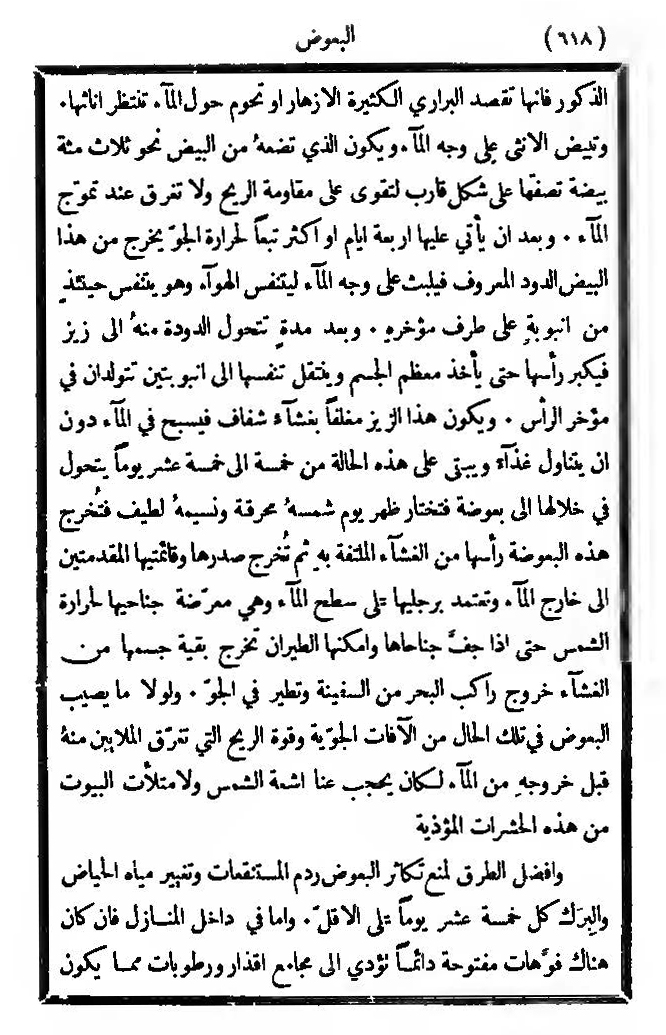 (٦١٨) البعوض
الذكور فانها تقصد البراري الكثيرة الازهار او تحوم حول المآء تنتظر اناثها.
وتبيض الانثى على وجه المآء ويكون الذي تضعهُ من البيض نحو ثلاث مئة
بيضة تصفّها على شكل قارب لتقوى على مقاومة الريح ولا تغرق عند تموّج
المآء . وبعد ان يأتي عليها اربعة ايام او اكثر تبعاً لحرارة الجوّ يخرج من هذا
البيض الدود المعروف فيلبث على وجه المآء ليتنفس الهوآء وهو يتنفس حينئذٍ
من انبوبةٍ على طرف مؤخرهِ . وبعد مدةٍ تتحول الدودة منهُ الى زيز
فيكبر رأسها حتى يأخذ معظم الجسم وينتقل تنفسها الى انبوبتين تتولدان في
مؤخر الرأس . ويكون هذا الزيز مغلفاً بغشآء شفاف فيسبح في المآء دون
ان يتناول غذآءً ويبقى على هذه الحالة من خمسة الى خمسة عشر يوماً يتحول
في خلالها الى بعوضة فتختار ظهر يوم شمسهُ محرقة ونسيمهُ لطيف فتُخرج
هذه البعوضة رأسها من الغشآء الملتفة بهِ ثم تُخرج صدرها وقائمتيها المقدمتين
الى خارج المآء وتعتمد برجليها على سطح المآء وهي معرّضة جناحيها لحرارة
الشمس حتى اذا جفَّ جناحاها وامكنها الطيران تخرج بقية جسمها من
الغشآء خروج راكب البحر من السفينة وتطير في الجوّ . ولولا ما يصيب
البعوض في تلك الحال من الآفات الجوّية وقوة الريح التي تغرّق الملايين منهُ
قبل خروجهِ من المآء لكان يحجب عنا اشعة الشمس ولامتلأت البيوت
من هذه الحشرات المؤذية
وافضل الطرق لمنع تكاثر البعوض ردم المستنقعات وتغيير مياه الحياض
والبِرَك كل خمسة عشر يوماً على الاقلّ . واما في داخل المنازل فان كان
هناك فوَّهات مفتوحة دائماً تؤدي الى مجامع اقذار ورطوبات مما يكون